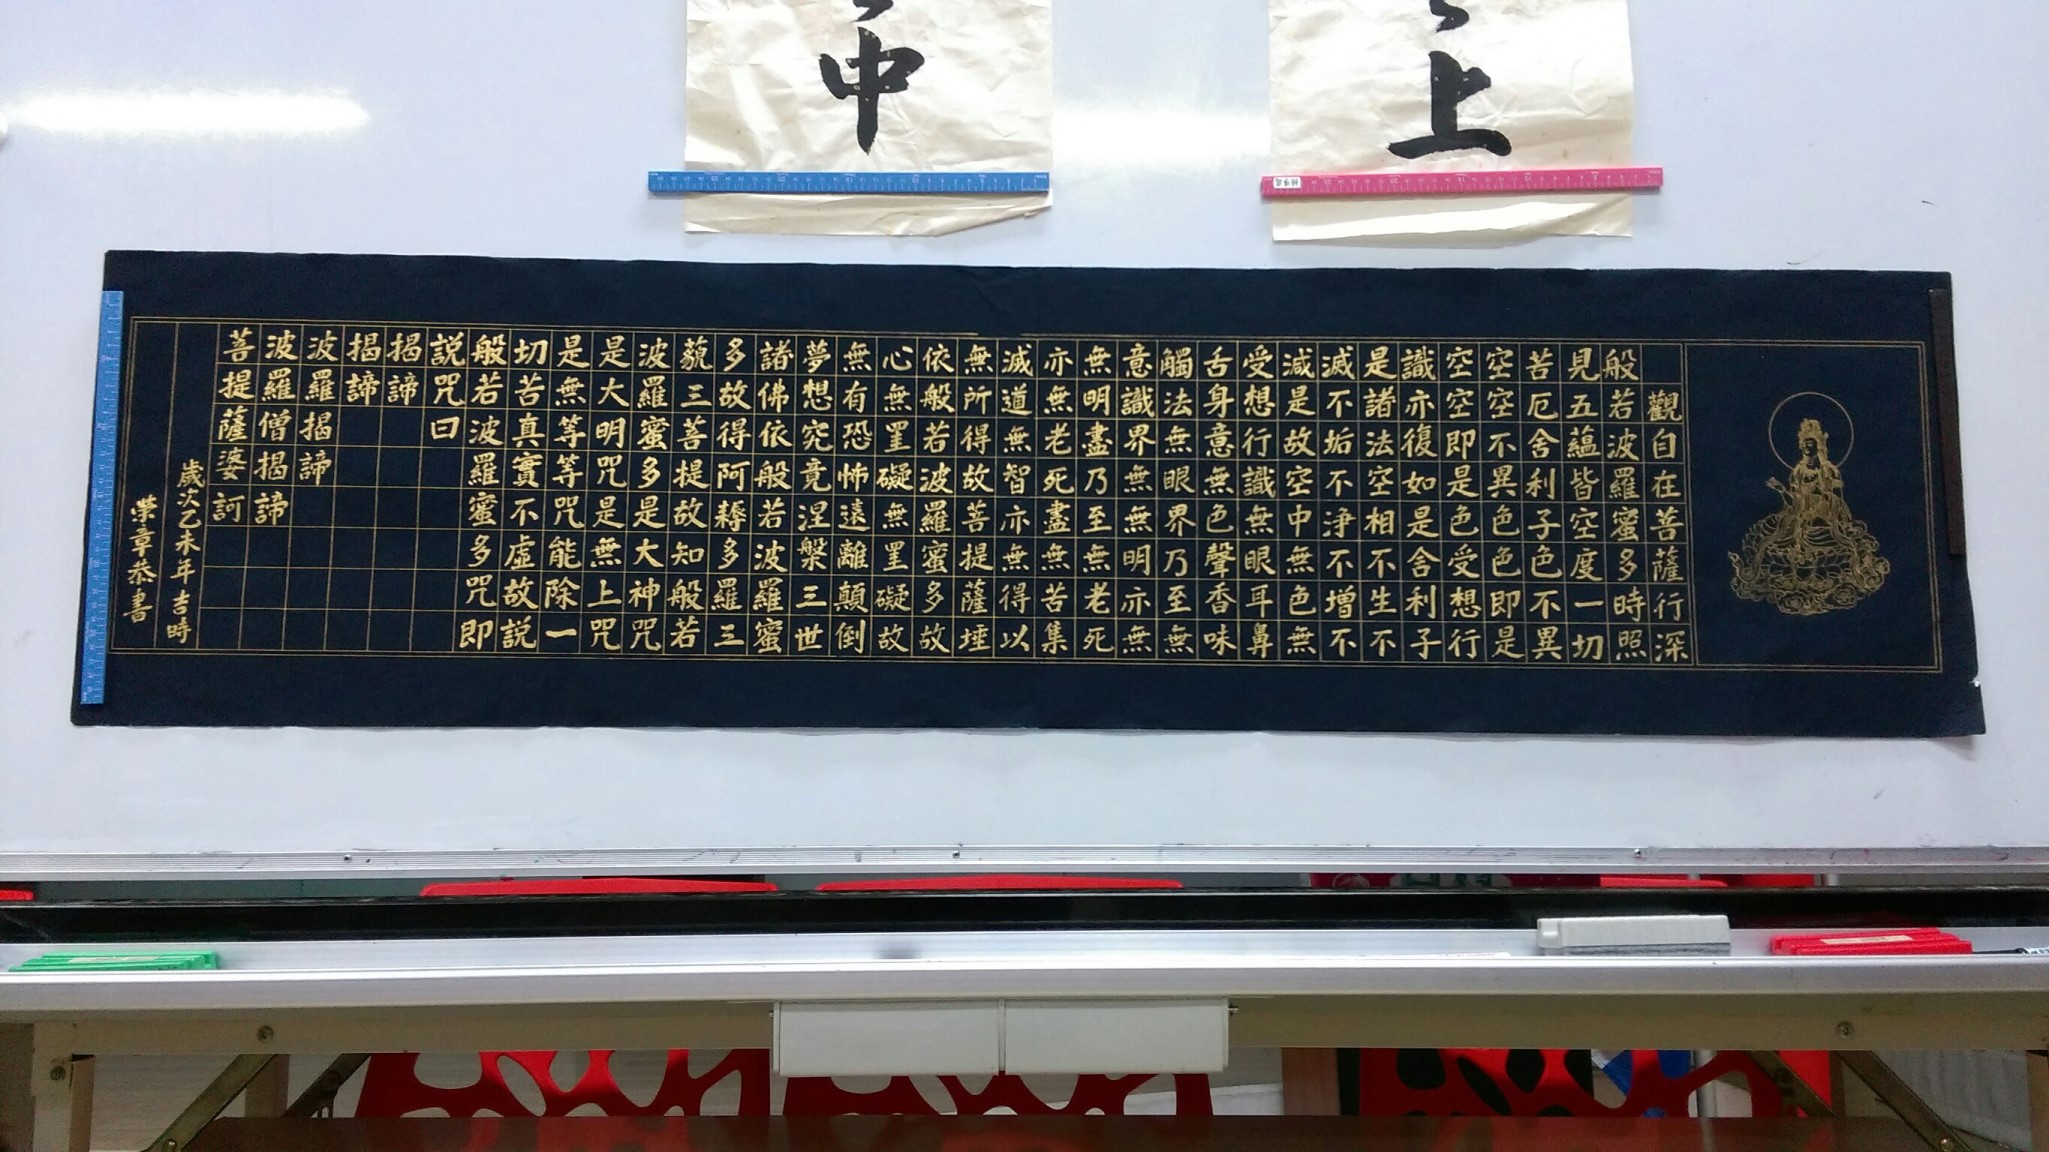 上
中
觀自在菩薩行深
般若波羅蜜多時照
見五蘊皆空度一切
苦厄舍利子色不異
空空不異色色即是
空空即是色受想行
識亦復如是舍利子
是諸法空相不生不
滅不垢不浄不增不
減是故空中無色無
受想行識無眼耳鼻
舌身意無色聲香味
觸法無眼界乃至無
意識界無無明亦無
無明盡乃至無老死
亦無老死盡無苦集
滅道無智亦無得以
無所得故菩提薩埵
依般若波羅蜜多故
心無罣礙無罣礙故
無有恐怖遠離顛倒
夢想究竟涅槃三世
諸佛依般若波羅蜜
多故得阿耨多羅三
藐三菩提故知般若
波羅蜜多是大神咒
是大明咒是無上咒
是無等等咒能除一
切苦真實不虛故說
般若波羅蜜多咒即
說咒曰
揭諦
揭諦
波羅揭諦
波羅僧揭諦
菩提薩婆訶
歲次乙未年吉時
榮章恭書